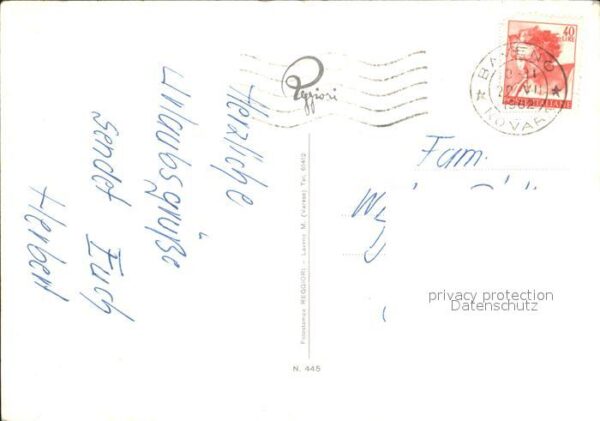 Herzliche
Urlaubsgrüße
sendet Euch
Herbert
Reggiori
40
LIRE
BAVENO
22 VII
1962
NOVARA
Fam.
privacy protection
Datenschutz
Fotostampa REGGIORI - Laveno M. (Varese) Tel. 61412
N. 445